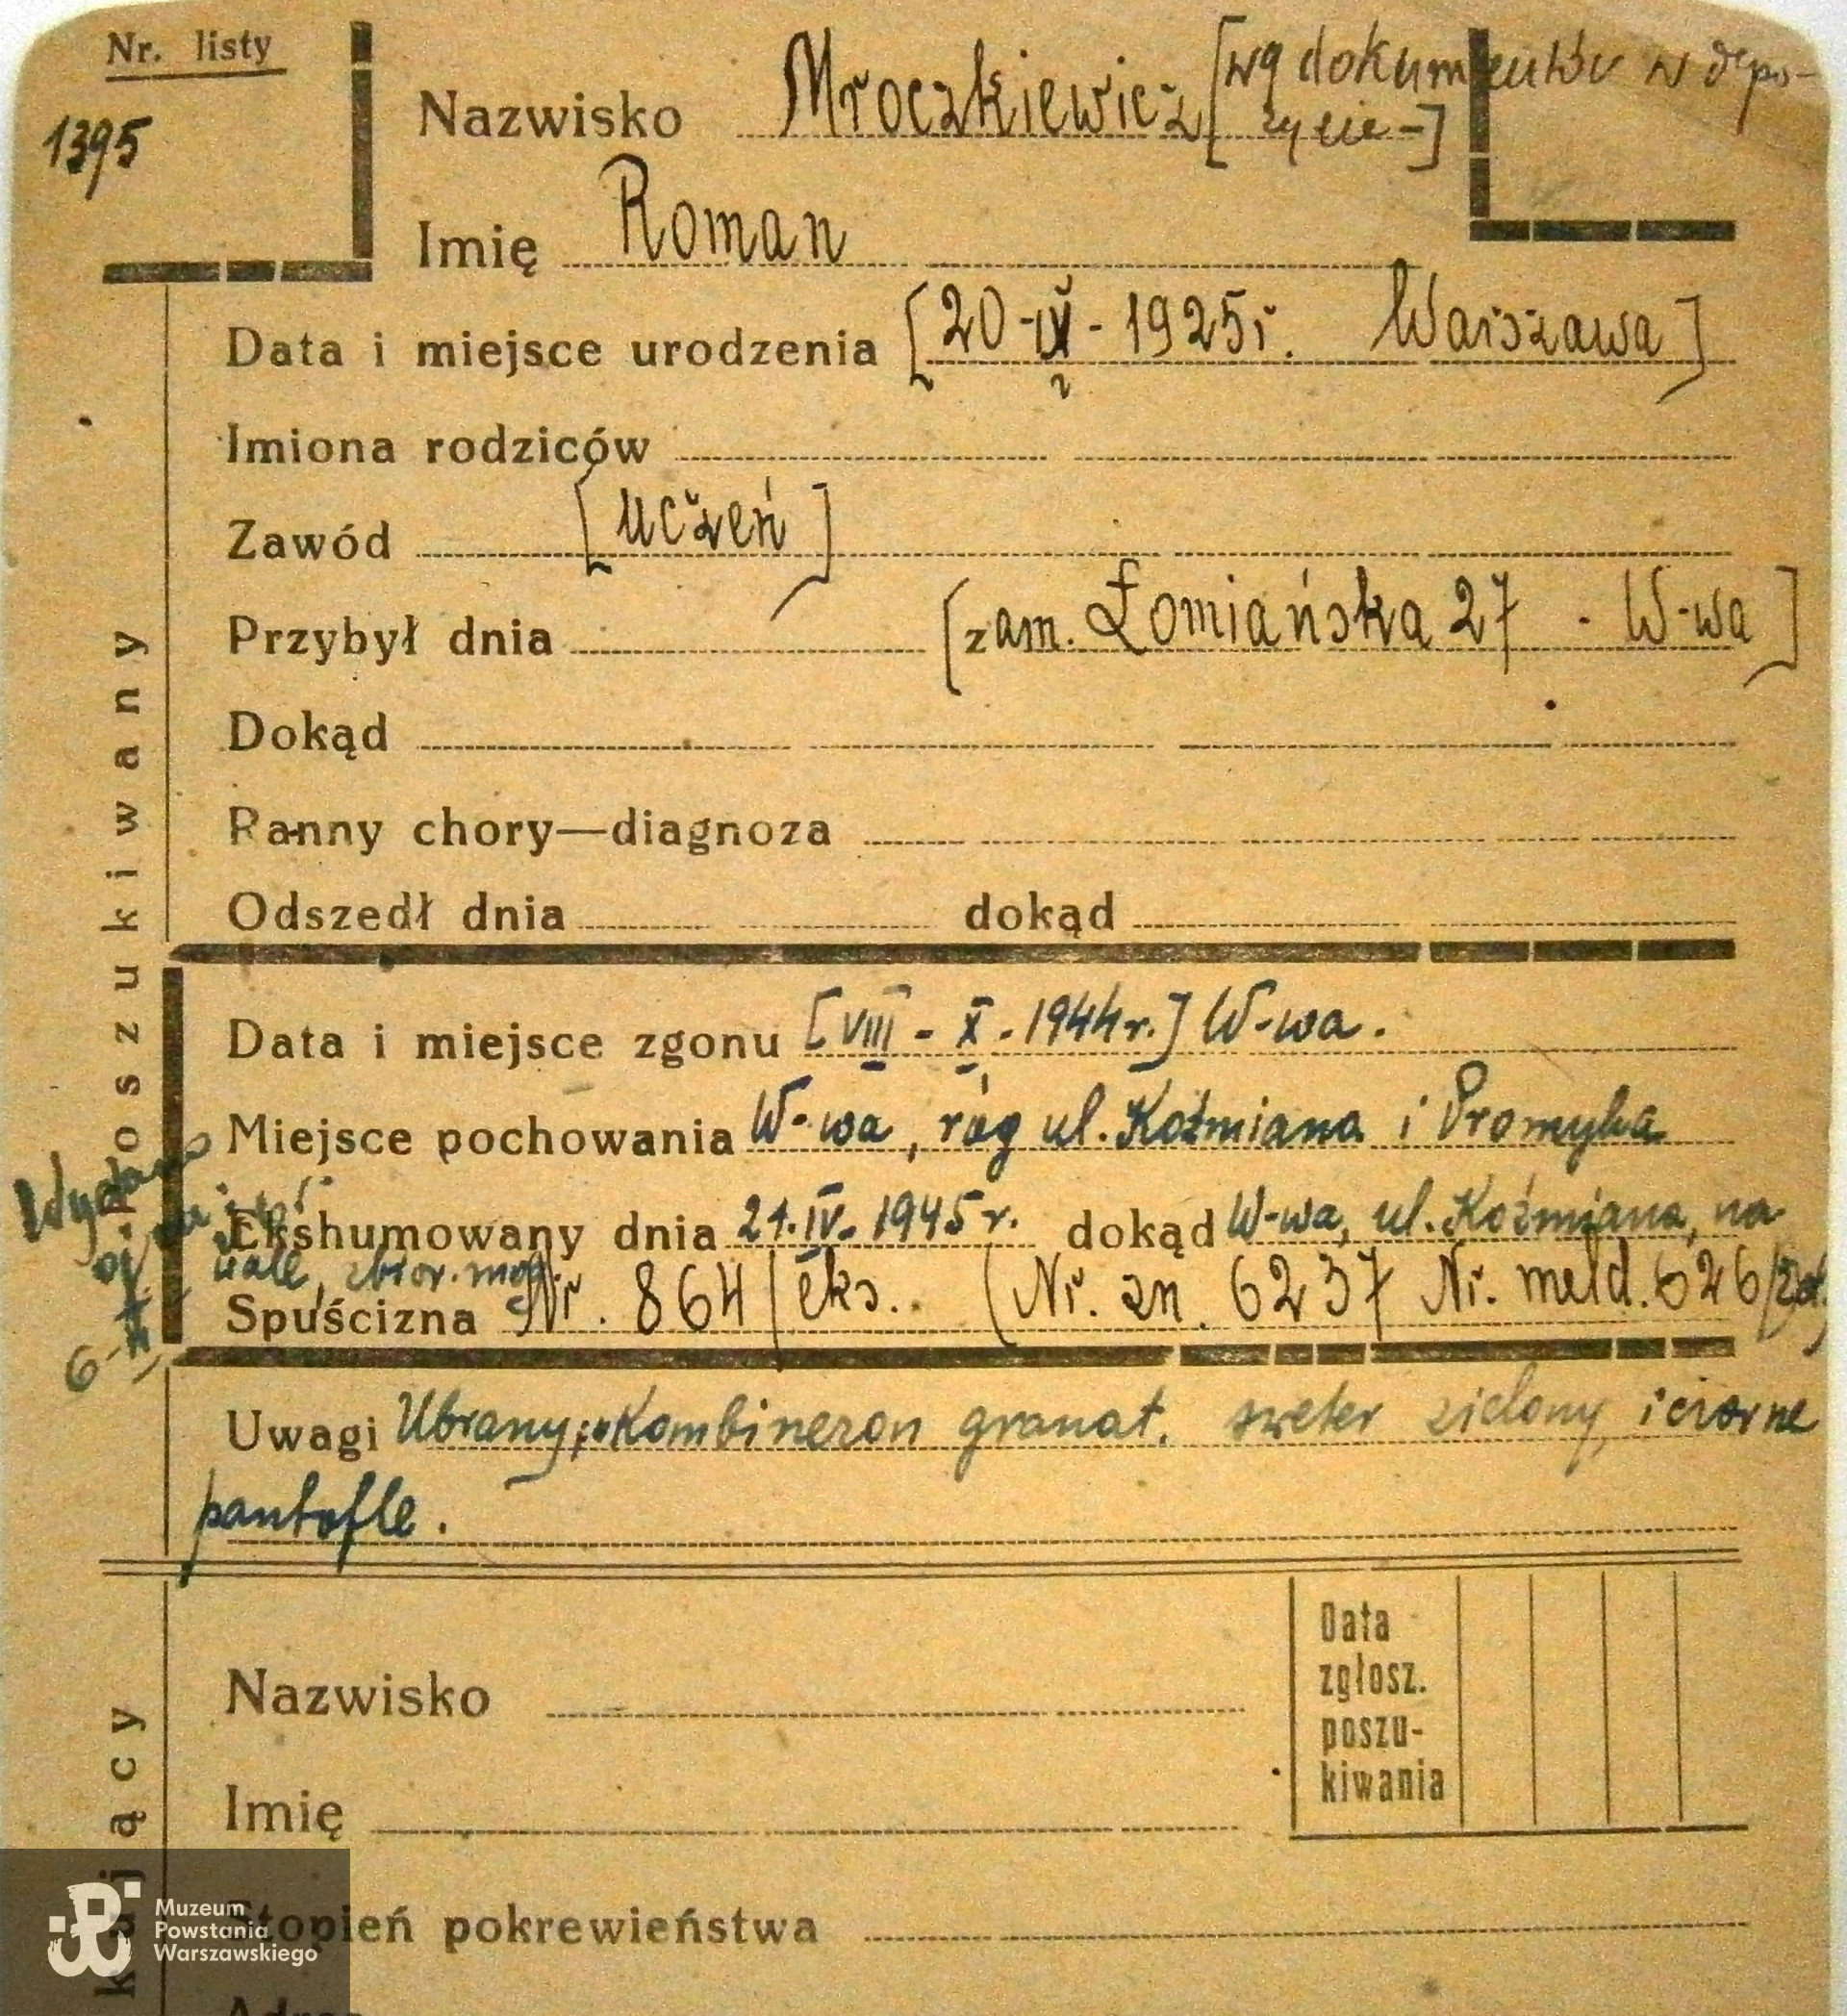 Nr. listy
1395
Nazwisko Mroczkiewicz [wg dokumentów w depo-
zycie-]
Imię Roman
Data i miejsce urodzenia [20-IV-1925r. Warszawa]
Imiona rodziców
Zawód [uczeń]
Przybył dnia [zam. Łomiańska 27 - W-wa]
Dokąd
Ranny chory—diagnoza
Odszedł dnia dokąd
Poszukiwany
Data i miejsce zgonu [VIII - X - 1944r.] W-wa.
Miejsce pochowania W-wa, róg ul. Koźmiana i Promyka
Ekshumowany dnia 21.IV. 1945r. dokąd W-wa, ul. Koźmiana, na
wale, zbior. mog.
Spuścizna Nr. 864/eks. (Nr. zn. 6237 Nr. meld. 626
Uwagi Ubrany; Kombinezon granat. sweter zielony, i czarne
pantofle.
Nazwisko
Data
zgłosz.
poszu-
kiwania
Imię
Stopień pokrewieństwa
Muzeum
Powstania
Warszawskiego